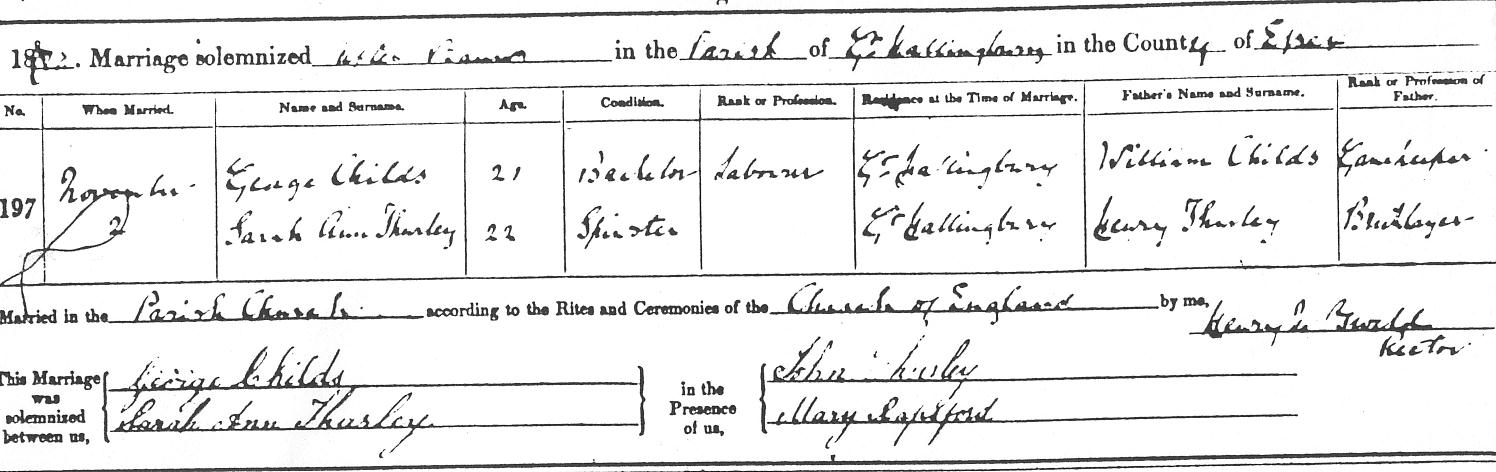 18 . Marriage solemnized in the Parish of Gt Hallingbury in the County of Essex
No. When Married. Name and Surname. Age. Condition. Rank or Profession. Residence at the Time of Marriage. Father's Name and Surname. Rank or Profession of Father.
197 November 2 George Childs 21 Bachelor Labourer Gt Hallingbury William Childs Gamekeeper
Sarah Ann Thurley 22 Spinster Gt Hallingbury Henry Thurley Bricklayer
Married in the Parish Church according to the Rites and Ceremonies of the Church of England by me, Henry
Rector
This Marriage was solemnized between us, George Childs in the Presence of us, John Thurley
Sarah Ann Thurley Mary Sapsford